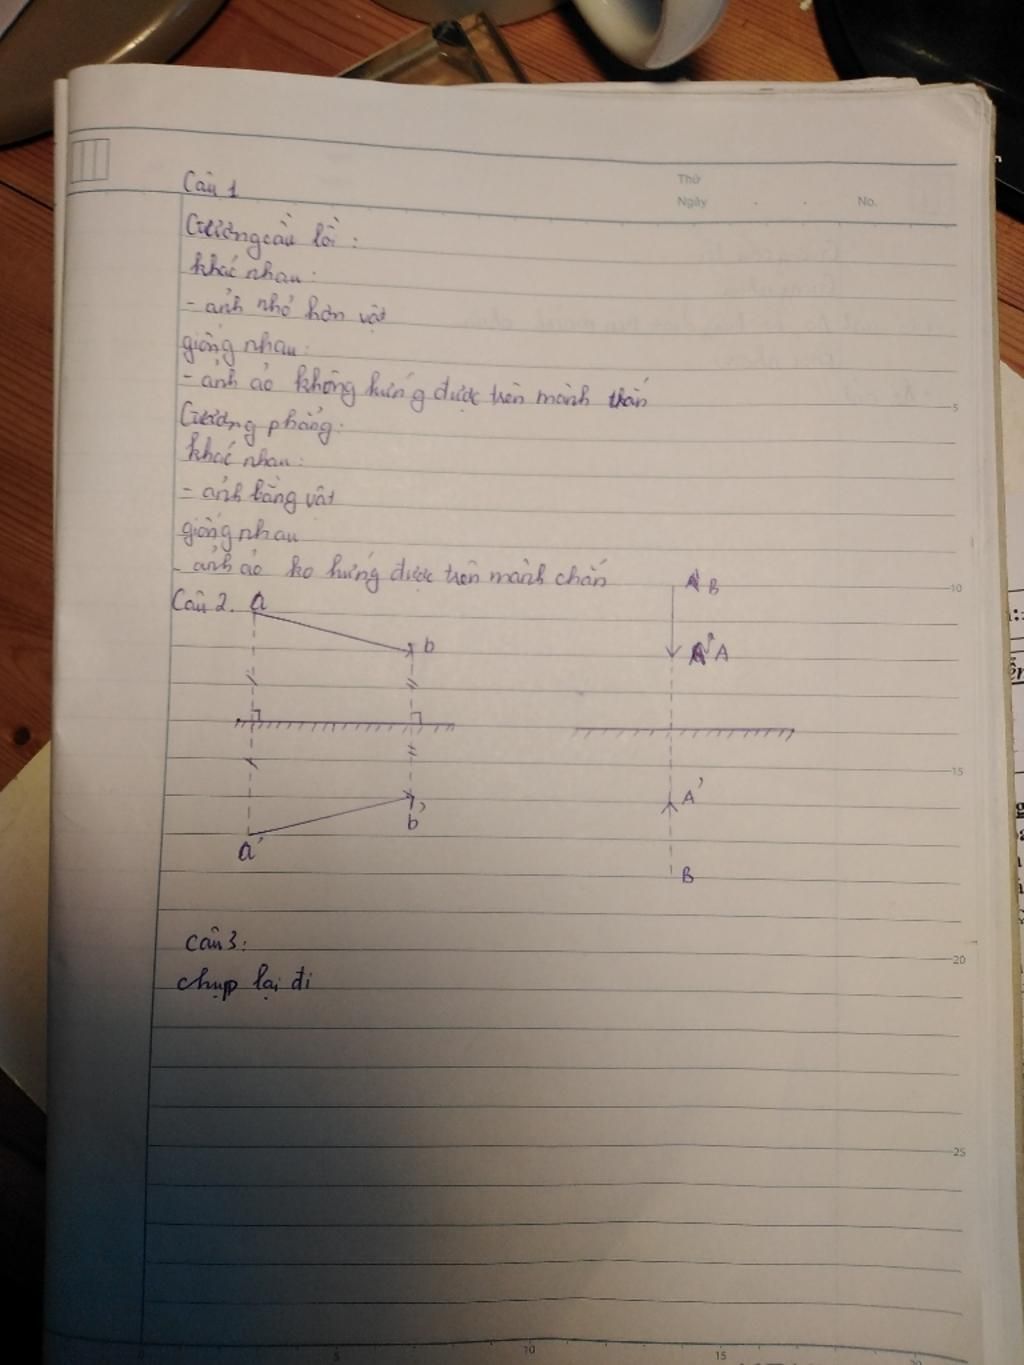 Câu 1
Thứ
Ngày . . No.
Gương cầu lồi :
khác nhau:
- ảnh nhỏ hơn vật
giống nhau:
- ảnh ảo không hứng được trên mành chắn
5
Gương phẳng:
khác nhau:
- ảnh bằng vật
giống nhau
- ảnh ảo ko hứng được trên mành chắn
10
Câu 2. a
b
B
A
15
a'
b'
A'
B
Câu 3:
chụp lại đi
20
25
5 10 15 20